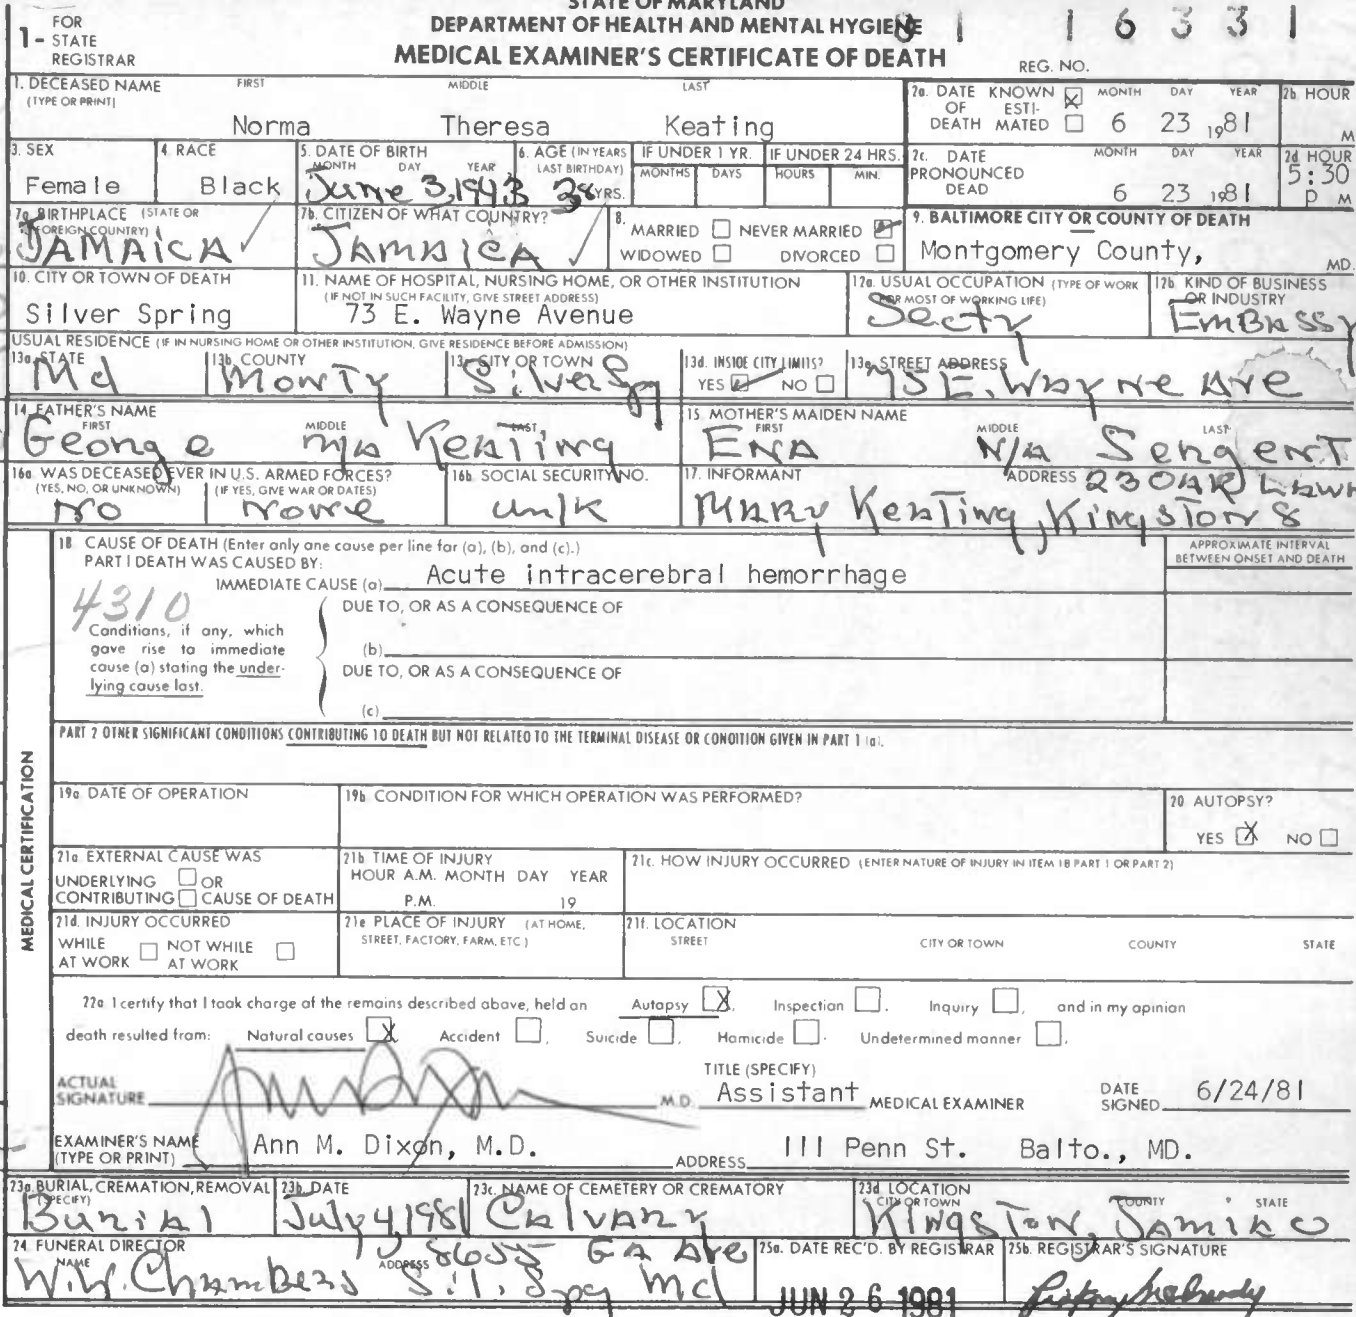 STATE OF MARYLAND
DEPARTMENT OF HEALTH AND MENTAL HYGIENE
MEDICAL EXAMINER'S CERTIFICATE OF DEATH
1- FOR STATE REGISTRAR
81 16331
REG. NO.
1. DECEASED NAME (TYPE OR PRINT) FIRST MIDDLE LAST
Norma Theresa Keating
2a. DATE OF DEATH KNOWN X ESTIMATED MONTH DAY YEAR 2b. HOUR
6 23 1981 M
3. SEX 4. RACE 5. DATE OF BIRTH MONTH DAY YEAR 6. AGE (IN YEARS LAST BIRTHDAY) IF UNDER 1 YR. MONTHS DAYS IF UNDER 24 HRS. HOURS MIN.
Female Black June 3, 1943 38 YRS.
2c. DATE PRONOUNCED DEAD MONTH DAY YEAR 2d HOUR
6 23 1981 5:30 P M
7a. BIRTHPLACE (STATE OR FOREIGN COUNTRY) 7b. CITIZEN OF WHAT COUNTRY?
JAMAICA JAMAICA
8. MARRIED NEVER MARRIED
WIDOWED DIVORCED
9. BALTIMORE CITY OR COUNTY OF DEATH
Montgomery County, MD.
10. CITY OR TOWN OF DEATH 11. NAME OF HOSPITAL, NURSING HOME, OR OTHER INSTITUTION (IF NOT IN SUCH FACILITY, GIVE STREET ADDRESS)
Silver Spring 73 E. Wayne Avenue
12a. USUAL OCCUPATION (TYPE OF WORK FOR MOST OF WORKING LIFE) 12b. KIND OF BUSINESS OR INDUSTRY
Secty EMBASSY
USUAL RESIDENCE (IF IN NURSING HOME OR OTHER INSTITUTION, GIVE RESIDENCE BEFORE ADMISSION)
13a. STATE 13b. COUNTY 13c. CITY OR TOWN 13d. INSIDE CITY LIMITS? YES NO 13e. STREET ADDRESS
Md MONTY Silver Spg 73 E. WAYNE AVE
14. FATHER'S NAME FIRST MIDDLE LAST 15. MOTHER'S MAIDEN NAME FIRST MIDDLE LAST
George n/a KEATING ENA N/A Sengent
16a. WAS DECEASED EVER IN U.S. ARMED FORCES? (YES, NO, OR UNKNOWN) (IF YES, GIVE WAR OR DATES) 16b. SOCIAL SECURITY NO. 17. INFORMANT ADDRESS
NO None unlk MARY KEATING, KINGSTON 8
18. CAUSE OF DEATH (Enter only one cause per line for (a), (b), and (c).)
PART I DEATH WAS CAUSED BY:
APPROXIMATE INTERVAL BETWEEN ONSET AND DEATH
IMMEDIATE CAUSE (a) Acute intracerebral hemorrhage
4310
DUE TO, OR AS A CONSEQUENCE OF
Conditions, if any, which gave rise to immediate cause (a) stating the underlying cause last.
(b)
DUE TO, OR AS A CONSEQUENCE OF
(c)
PART 2 OTHER SIGNIFICANT CONDITIONS CONTRIBUTING TO DEATH BUT NOT RELATED TO THE TERMINAL DISEASE OR CONDITION GIVEN IN PART 1 (a).
MEDICAL CERTIFICATION
19a. DATE OF OPERATION 19b. CONDITION FOR WHICH OPERATION WAS PERFORMED? 20 AUTOPSY?
YES X NO
21a. EXTERNAL CAUSE WAS
UNDERLYING OR
CONTRIBUTING CAUSE OF DEATH
21b. TIME OF INJURY
HOUR A.M. MONTH DAY YEAR
P.M. 19
21c. HOW INJURY OCCURRED (ENTER NATURE OF INJURY IN ITEM 18 PART 1 OR PART 2)
21d. INJURY OCCURRED
WHILE AT WORK NOT WHILE AT WORK
21e PLACE OF INJURY (AT HOME, STREET, FACTORY, FARM, ETC.)
21f. LOCATION
STREET CITY OR TOWN COUNTY STATE
22a. I certify that I took charge of the remains described above, held an Autopsy X, Inspection , Inquiry , and in my opinion
death resulted from: Natural causes X Accident , Suicide , Homicide . Undetermined manner .
ACTUAL SIGNATURE M.D.
TITLE (SPECIFY)
Assistant MEDICAL EXAMINER
DATE SIGNED 6/24/81
EXAMINER'S NAME (TYPE OR PRINT) Ann M. Dixon, M.D.
ADDRESS 111 Penn St. Balto., MD.
23a. BURIAL, CREMATION, REMOVAL (SPECIFY) 23b. DATE 23c. NAME OF CEMETERY OR CREMATORY 23d LOCATION CITY OR TOWN COUNTY STATE
Burial July 4, 1981 CALVARY KINGSTON, JAMIAC
24. FUNERAL DIRECTOR NAME ADDRESS
W.W. Chambers 8655 GA AVE Sil. Spg Md
25a. DATE REC'D. BY REGISTRAR 25b. REGISTRAR'S SIGNATURE
JUN 26 1981